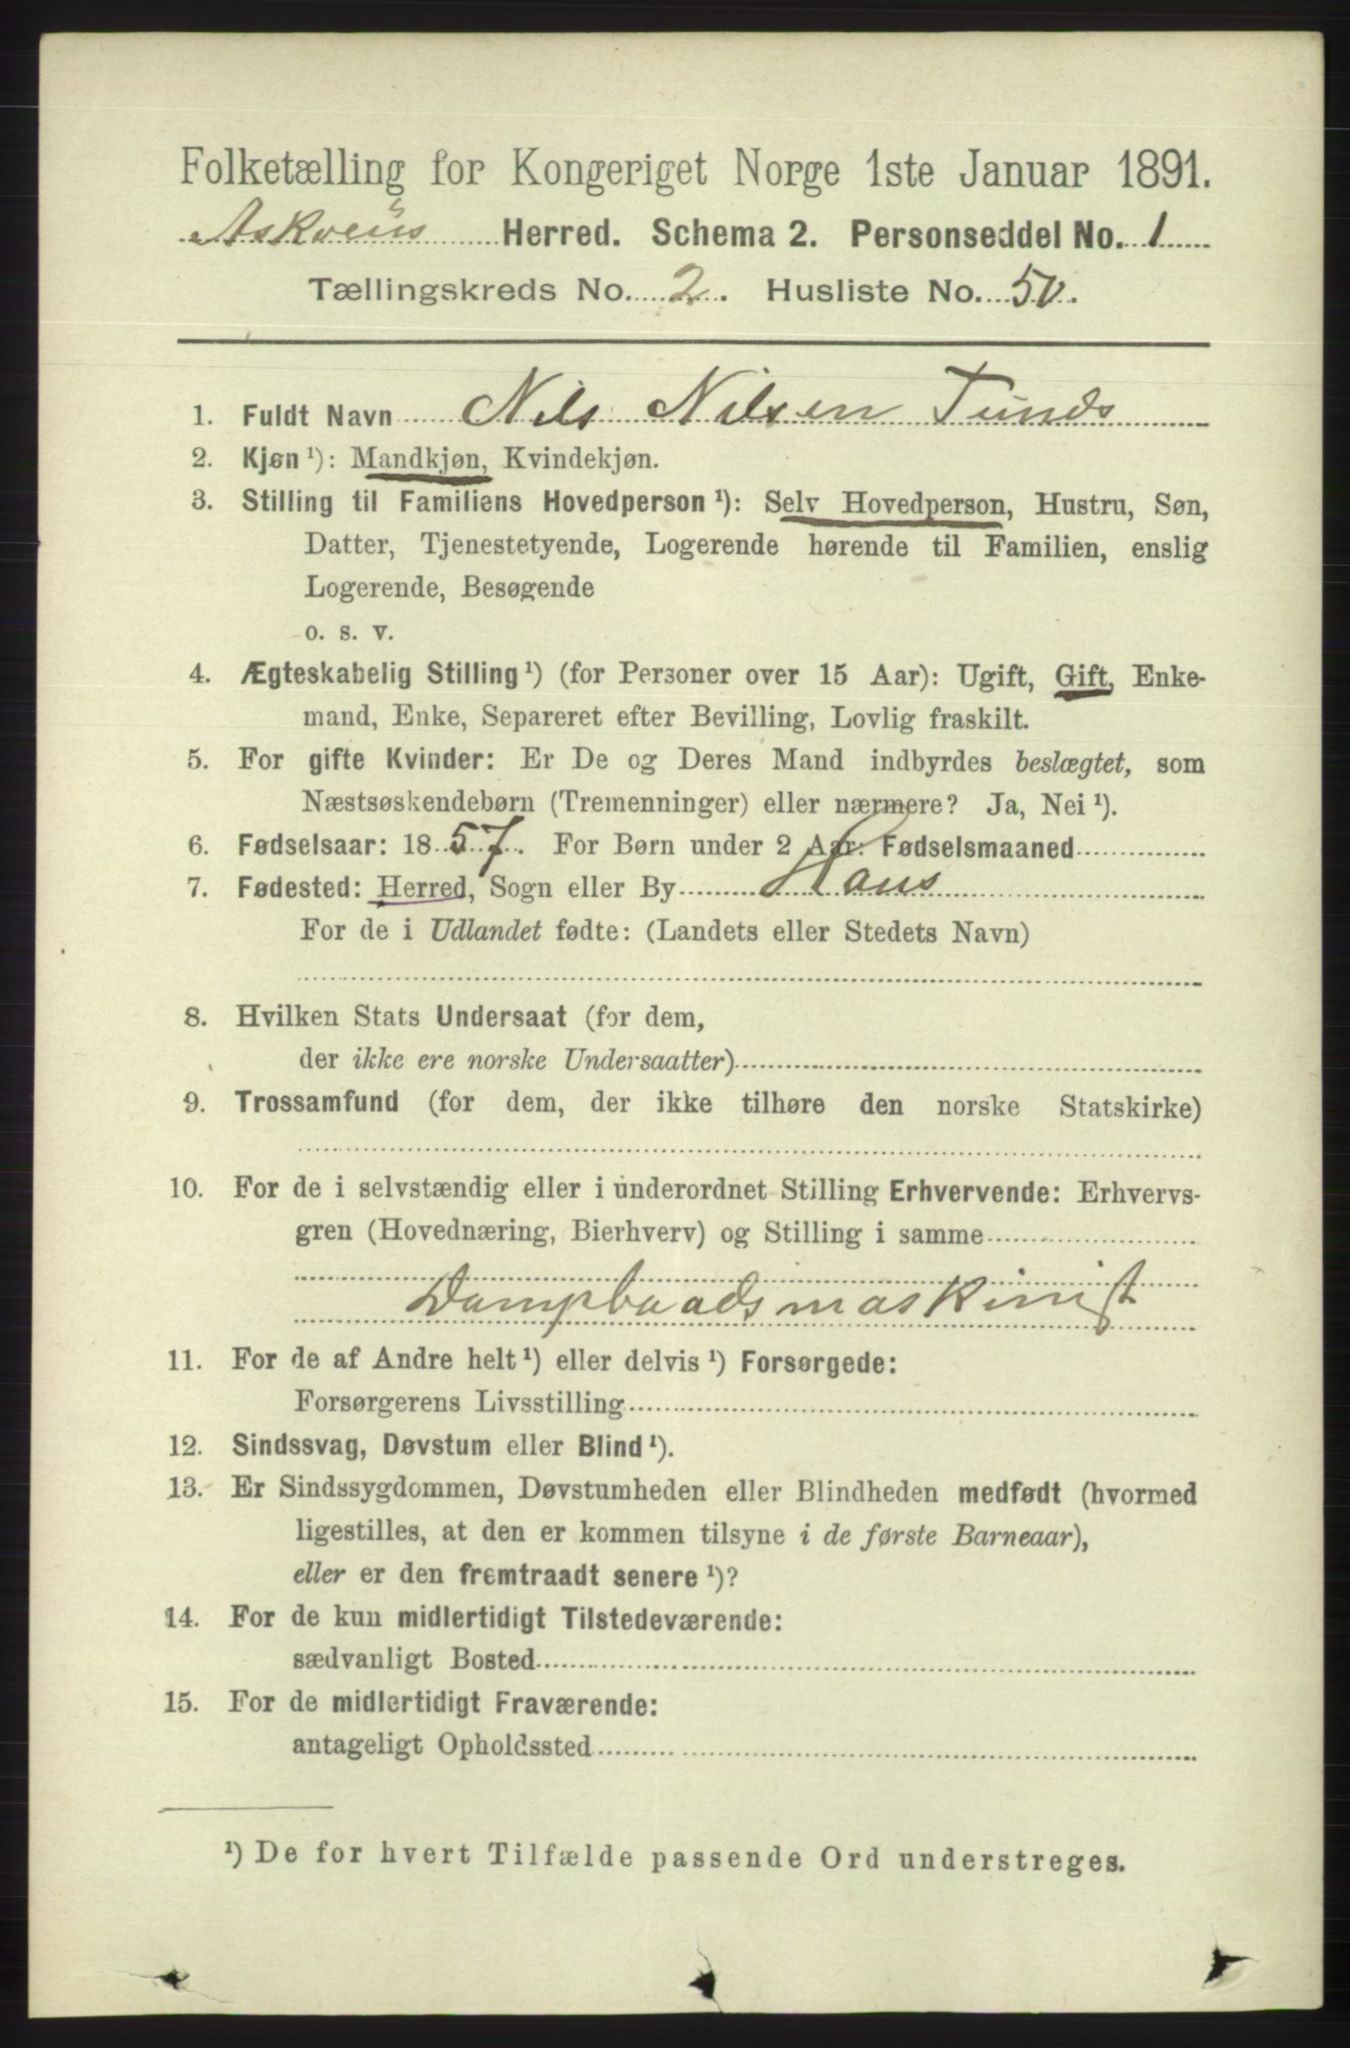 Folketælling for Kongeriget Norge 1ste Januar 1891.
Askvens Herred. Schema 2. Personseddel No. 1
Tællingskreds No. 2. Husliste No. 50.
1. Fuldt Navn Nils Nilsen Tunds
2. Kjøn ¹): Mandkjøn, Kvindekjøn.
3. Stilling til Familiens Hovedperson ¹): Selv Hovedperson, Hustru, Søn,
Datter, Tjenestetyende, Logerende hørende til Familien, enslig
Logerende, Besøgende
o. s. v.
4. Ægteskabelig Stilling ¹) (for Personer over 15 Aar): Ugift, Gift, Enke-
mand, Enke, Separeret efter Bevilling, Lovlig fraskilt.
5. For gifte Kvinder: Er De og Deres Mand indbyrdes beslægtet, som
Næstsøskendebørn (Tremenninger) eller nærmere? Ja, Nei ¹).
6. Fødselsaar: 1857. For Børn under 2 Aar: Fødselsmaaned
7. Fødested: Herred, Sogn eller By Haus
For de i Udlandet fødte: (Landets eller Stedets Navn)
8. Hvilken Stats Undersaat (for dem,
der ikke ere norske Undersaatter)
9. Trossamfund (for dem, der ikke tilhøre den norske Statskirke)
10. For de i selvstændig eller i underordnet Stilling Erhvervende: Erhvervs-
gren (Hovednæring, Bierhverv) og Stilling i samme
Dampbaadsmaskinist
11. For de af Andre helt ¹) eller delvis ¹) Forsørgede:
Forsørgerens Livsstilling
12. Sindssvag, Døvstum eller Blind ¹).
13. Er Sindssygdommen, Døvstumheden eller Blindheden medfødt (hvormed
ligestilles, at den er kommen tilsyne i de første Barneaar),
eller er den fremtraadt senere ¹)?
14. For de kun midlertidigt Tilstedeværende:
sædvanligt Bosted
15. For de midlertidigt Fraværende:
antageligt Opholdssted
¹) De for hvert Tilfælde passende Ord understreges.